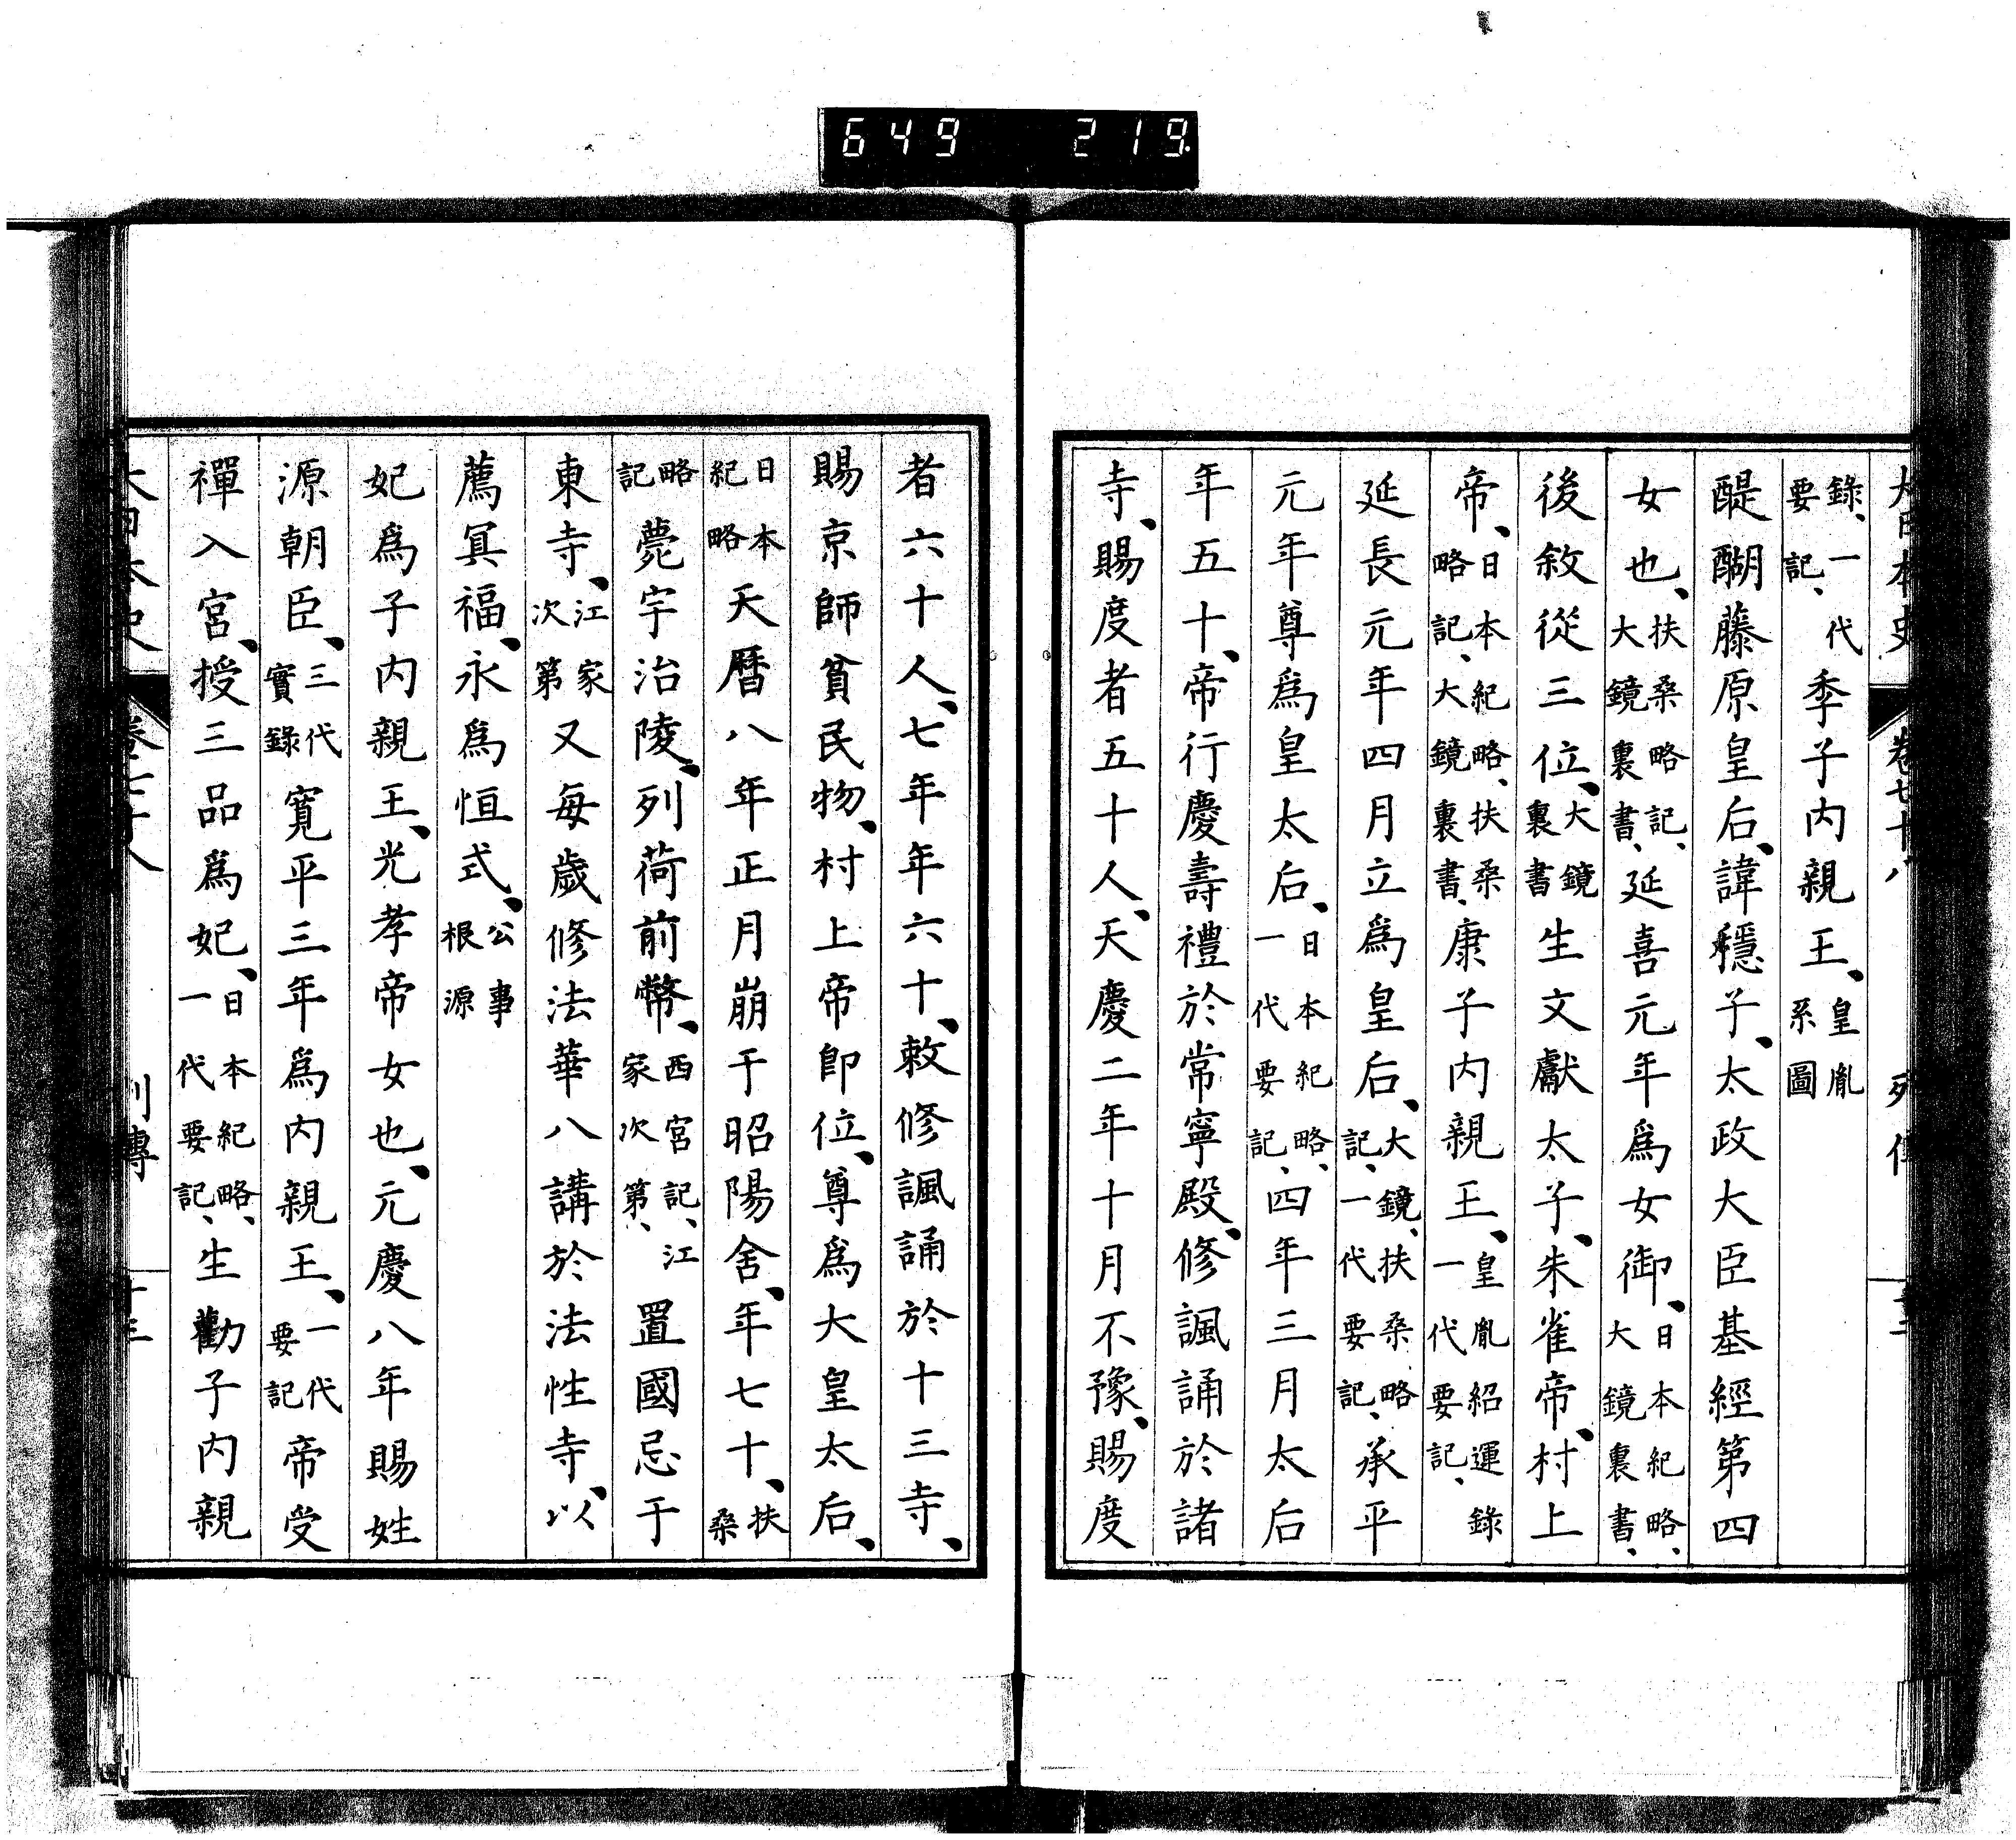 649 219
大日本史 卷七十八 列傳
錄、一代要記、季子內親王、皇胤系圖
醍醐藤原皇后、諱穩子、太政大臣基經第四
女也、扶桑略記、大鏡裏書、延喜元年爲女御、日本紀略、大鏡裏書、
後敘從三位、大鏡裏書生文獻太子、朱雀帝、村上
帝、日本紀略、扶桑略記、大鏡裏書、康子內親王、皇胤紹運錄一代要記、
延長元年四月立爲皇后、大鏡、扶桑略記、一代要記、承平
元年尊爲皇太后、日本紀略、一代要記、四年三月太后
年五十、帝行慶壽禮於常寧殿、修諷誦於諸
寺、賜度者五十人、天慶二年十月不豫、賜度
者六十人、七年年六十、敕修諷誦於十三寺、
賜京師貧民物、村上帝卽位、尊爲大皇太后、
日本紀略天曆八年正月崩于昭陽舍、年七十、扶桑
略記薨宇治陵、列荷前幣、西宮記、江家次第、置國忌于
東寺、江家次第又每歲修法華八講於法性寺、以
薦冥福、永爲恒式、公事根源
妃爲子內親王、光孝帝女也、元慶八年賜姓
源朝臣、三代實錄寬平三年爲內親王、一代要記帝受
禪入宮、授三品爲妃、日本紀略、一代要記、生勸子內親
大日本史 卷七十八 列傳 十三